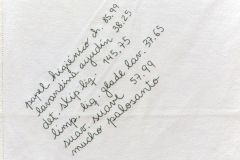 papel higiénico ch. 85.99
lavandina ayudín 38.25
det. skip liq. 145.75
limp. liq. glade lav. 37.65
suav. suave 57.99
mucho palosanto